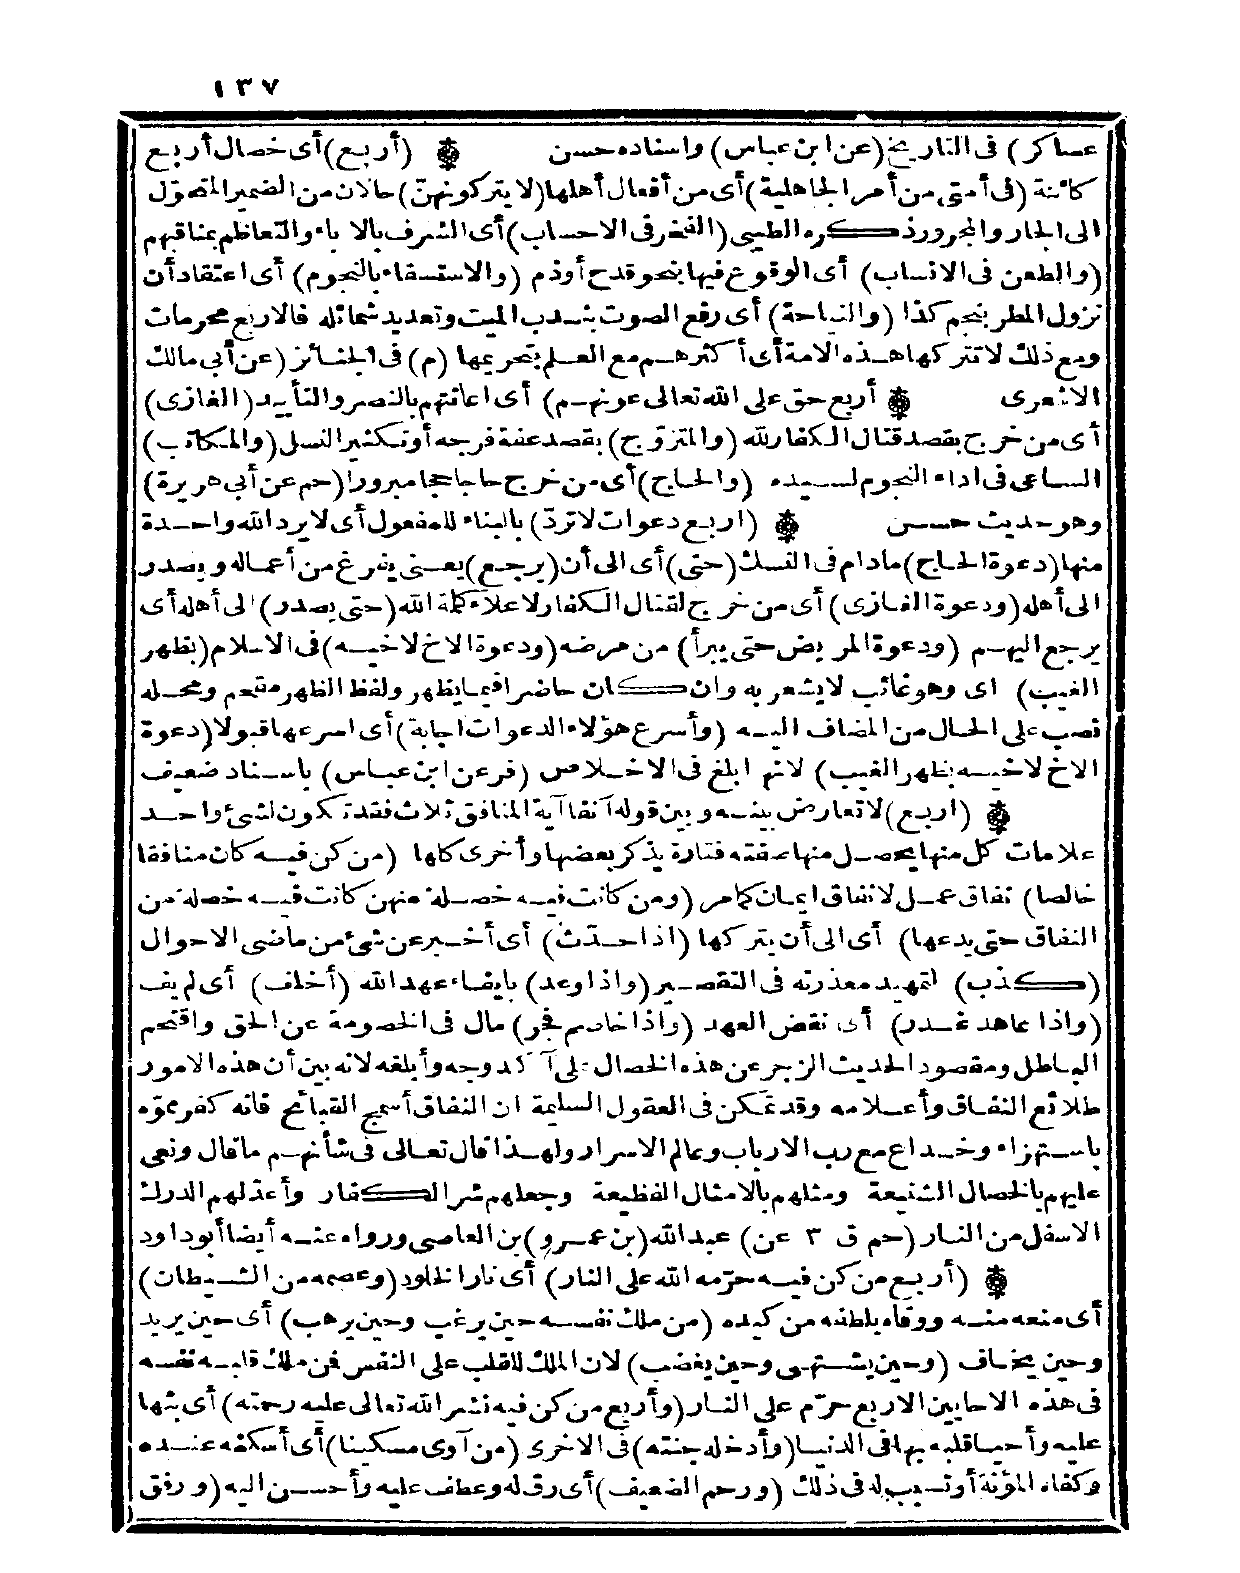 ١٣٧
عساكر) فى التاريخ (عن ابن عباس) واسناده حسن ۞ (أربع) أى خصال أربع
كائنة (فى أمتى من أمر الجاهلية) أى من أفعال أهلها (لا يتركونهنّ) حالان من الضمير المتحوّل
الى الجار والمجرور ذكره الطيبى (الفخر فى الاحساب) أى الشرف بالا باء والتعاظم بمناقبهم
(والطعن فى الانساب) أى الوقوع فيها بنحو قدح أوذم (والاستسقاء بالنجوم) أى اعتقاد أن
نزول المطر بنجم كذا (والنياحة) أى رفع الصوت بندب الميت وتعديد شمائله فالاربع محرمات
ومع ذلك لا تتركها هذه الامة أى أكثرهم مع العلم بتحريمها (م) فى الجنائز (عن أبى مالك
الاشعرى ۞ أربع حق على الله تعالى عونهم) أى اعانتهم بالنصر والتأييد (الغازى)
أى من خرج بقصد قتال الكفار لله (والمتزوّج) بقصد عفة فرجه أو تكثير النسل (والمكاتب)
الساعى فى اداء النجوم لسيده (والحاج) أى من خرج حاجا حجا مبرورا (حم عن أبى هريرة)
وهو حديث حسن ۞ (اربع دعوات لا تردّ) بالبناء للمفعول أى لا يرد الله واحدة
منها (دعوة الحاج) مادام فى النسك (حتى) أى الى أن (يرجع) يعنى يفرغ من أعماله ويصدر
الى أهله (ودعوة الغازى) أى من خرج لقتال الكفار لاعلاء كلمة الله (حتى يصدر) الى أهله أى
يرجع اليهم (ودعوة المريض حتى يبرأ) من مرضه (ودعوة الاخ لاخيه) فى الاسلام (بظهر
الغيب) اى وهو غائب لا يشعر به وان كان حاضرا فيما يظهر ولفظ الظهر مقحم ومحله
نصب على الحال من المضاف اليه (وأسرع هؤلاء الدعوات اجابة) أى اسرعها قبولا (دعوة
الاخ لاخيه بظهر الغيب) لانها ابلغ فى الاخلاص (فر عن ابن عباس) باسناد ضعيف
۞ (اربع) لا تعارض بينه وبين قوله آنفا آية المنافق ثلاث فقد تكون لشئ واحد
علامات كل منها يحصل منها صفته فتارة يذكر بعضها وأخرى كلها (من كن فيه كان منافقا
خالصا) نفاق عمل لا نفاق ايمان كما مر (ومن كانت فيه خصلة منهن كانت فيه خصلة من
النفاق حتى يدعها) أى الى أن يتركها (اذا حدّث) أى أخبر عن شئ من ماضى الاحوال
(كذب) لتمهيد معذرته فى التقصير (واذا وعد) بايفاء عهد الله (أخلف) أى لم يف
(واذا عاهد غدر) أى نقض العهد (واذا خاصم فجر) مال فى الخصومة عن الحق واقتحم
الباطل ومقصود الحديث الزجر عن هذه الخصال على آكد وجه وأبلغه لانه بين أن هذه الامور
طلائع النفاق وأعلامه وقد تمكن فى العقول السليمة ان النفاق أسمج القبائح فانه كفر مموّه
باستهزاء وخداع مع رب الارباب وعالم الاسرار ولهذا قال تعالى فى شأنهم ما قال ونعى
عليهم بالخصال الشنيعة ومثلهم بالامثال الفظيعة وجعلهم شر الكفار وأعدّ لهم الدرك
الاسفل من النار (حم ق ٣ عن) عبد الله (بن عمرو) بن العاصى ورواه عنه أيضا أبو داود
۞ (أربع من كن فيه حرّمه الله على النار) أى نار الخلود (وعصمه من الشيطان)
أى منعه منه ووقاه بلطفه من كيده (من ملك نفسه حين يرغب وحين يرهب) أى حين يريد
وحين يخاف (وحين يشتهى وحين يغضب) لان الملك للقلب على النفس فمن ملك قلبه نفسه
فى هذه الاحايين الاربع حرّم على النار (وأربع من كن فيه نشر الله تعالى عليه رحمته) أى بثها
عليه وأحيا قلبه بها فى الدنيا (وأدخله جنته) فى الاخرى (من آوى مسكينا) أى أسكنه عنده
وكفاه المؤنة أو تسبب له فى ذلك (ورحم الضعيف) أى رق له وعطف عليه وأحسن اليه (ورفق